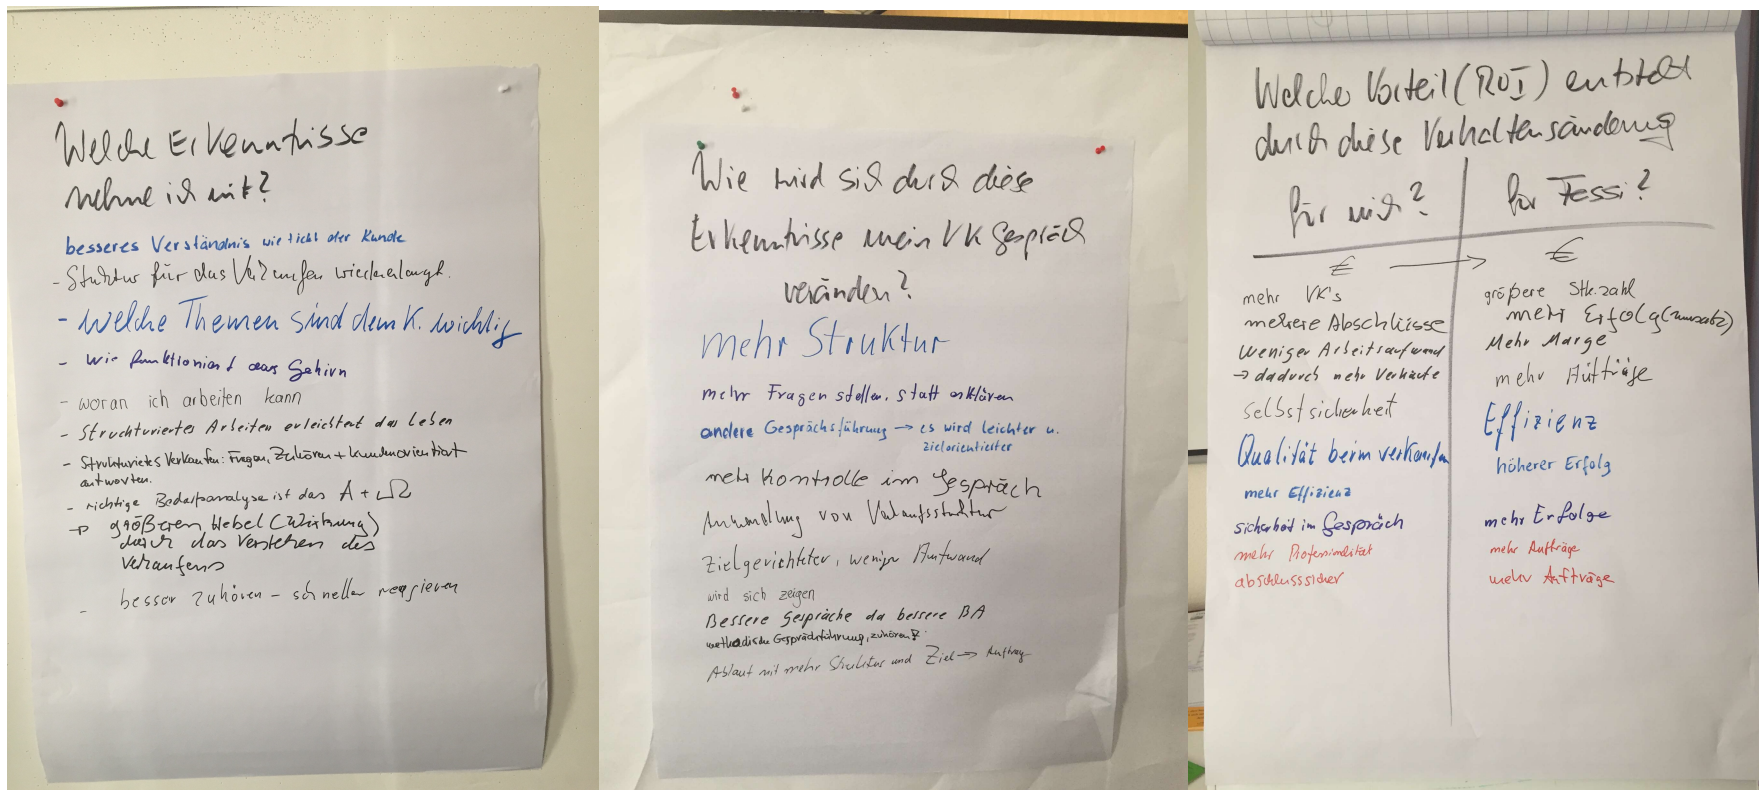 Welche Erkenntnisse
nehme ich mit?
besseres Verständnis wie tickt der Kunde
- Struktur für das Verkaufen wiedererlangt.
- Welche Themen sind dem K. wichtig
- wie funktioniert das Gehirn
- woran ich arbeiten kann
- Struchturiertes Arbeiten erleichtert das Leben
- Strukturietes Verkaufen: Fragen, Zuhören + kundenorientiert
antworten.
- richtige Bedarfsanalyse ist das A + Ω
→ größeren Hebel (Wirkung)
durch das Verstehen des
Verkaufens
- besser zuhören - schneller reagieren
Wie wird sich durch diese
Erkenntnisse mein VK Gespräch
verändern?
mehr Struktur
mehr Fragen stellen, statt erklären
andere Gesprächsführung → es wird leichter u.
zielorientierter
mehr Kontrolle im Gespräch
Anwendung von Verkaufsstruktur
Zielgerichteter, weniger Aufwand
wird sich zeigen
Bessere Gespräche da bessere BA
methodische Gesprächsführung, zuhören
Ablauf mit mehr Struktur und Ziel → Auftrag
Welcher Vorteil (ROI) entsteht
durch diese Verhaltensänderung
für mich?
€ →
mehr VK's
mehrere Abschlüsse
weniger Arbeitsaufwand
→ dadurch mehr Verkäufe
Selbstsicherheit
Qualität beim verkaufen
mehr Effizienz
sicherheit im Gespräch
mehr Professionalität
abschlusssicher
für Tessi?
€
größere Stk.zahl
mehr Erfolg (umsatz)
Mehr Marge
mehr Aufträge
Effizienz
höherer Erfolg
mehr Erfolge
mehr Aufträge
mehr Aufträge